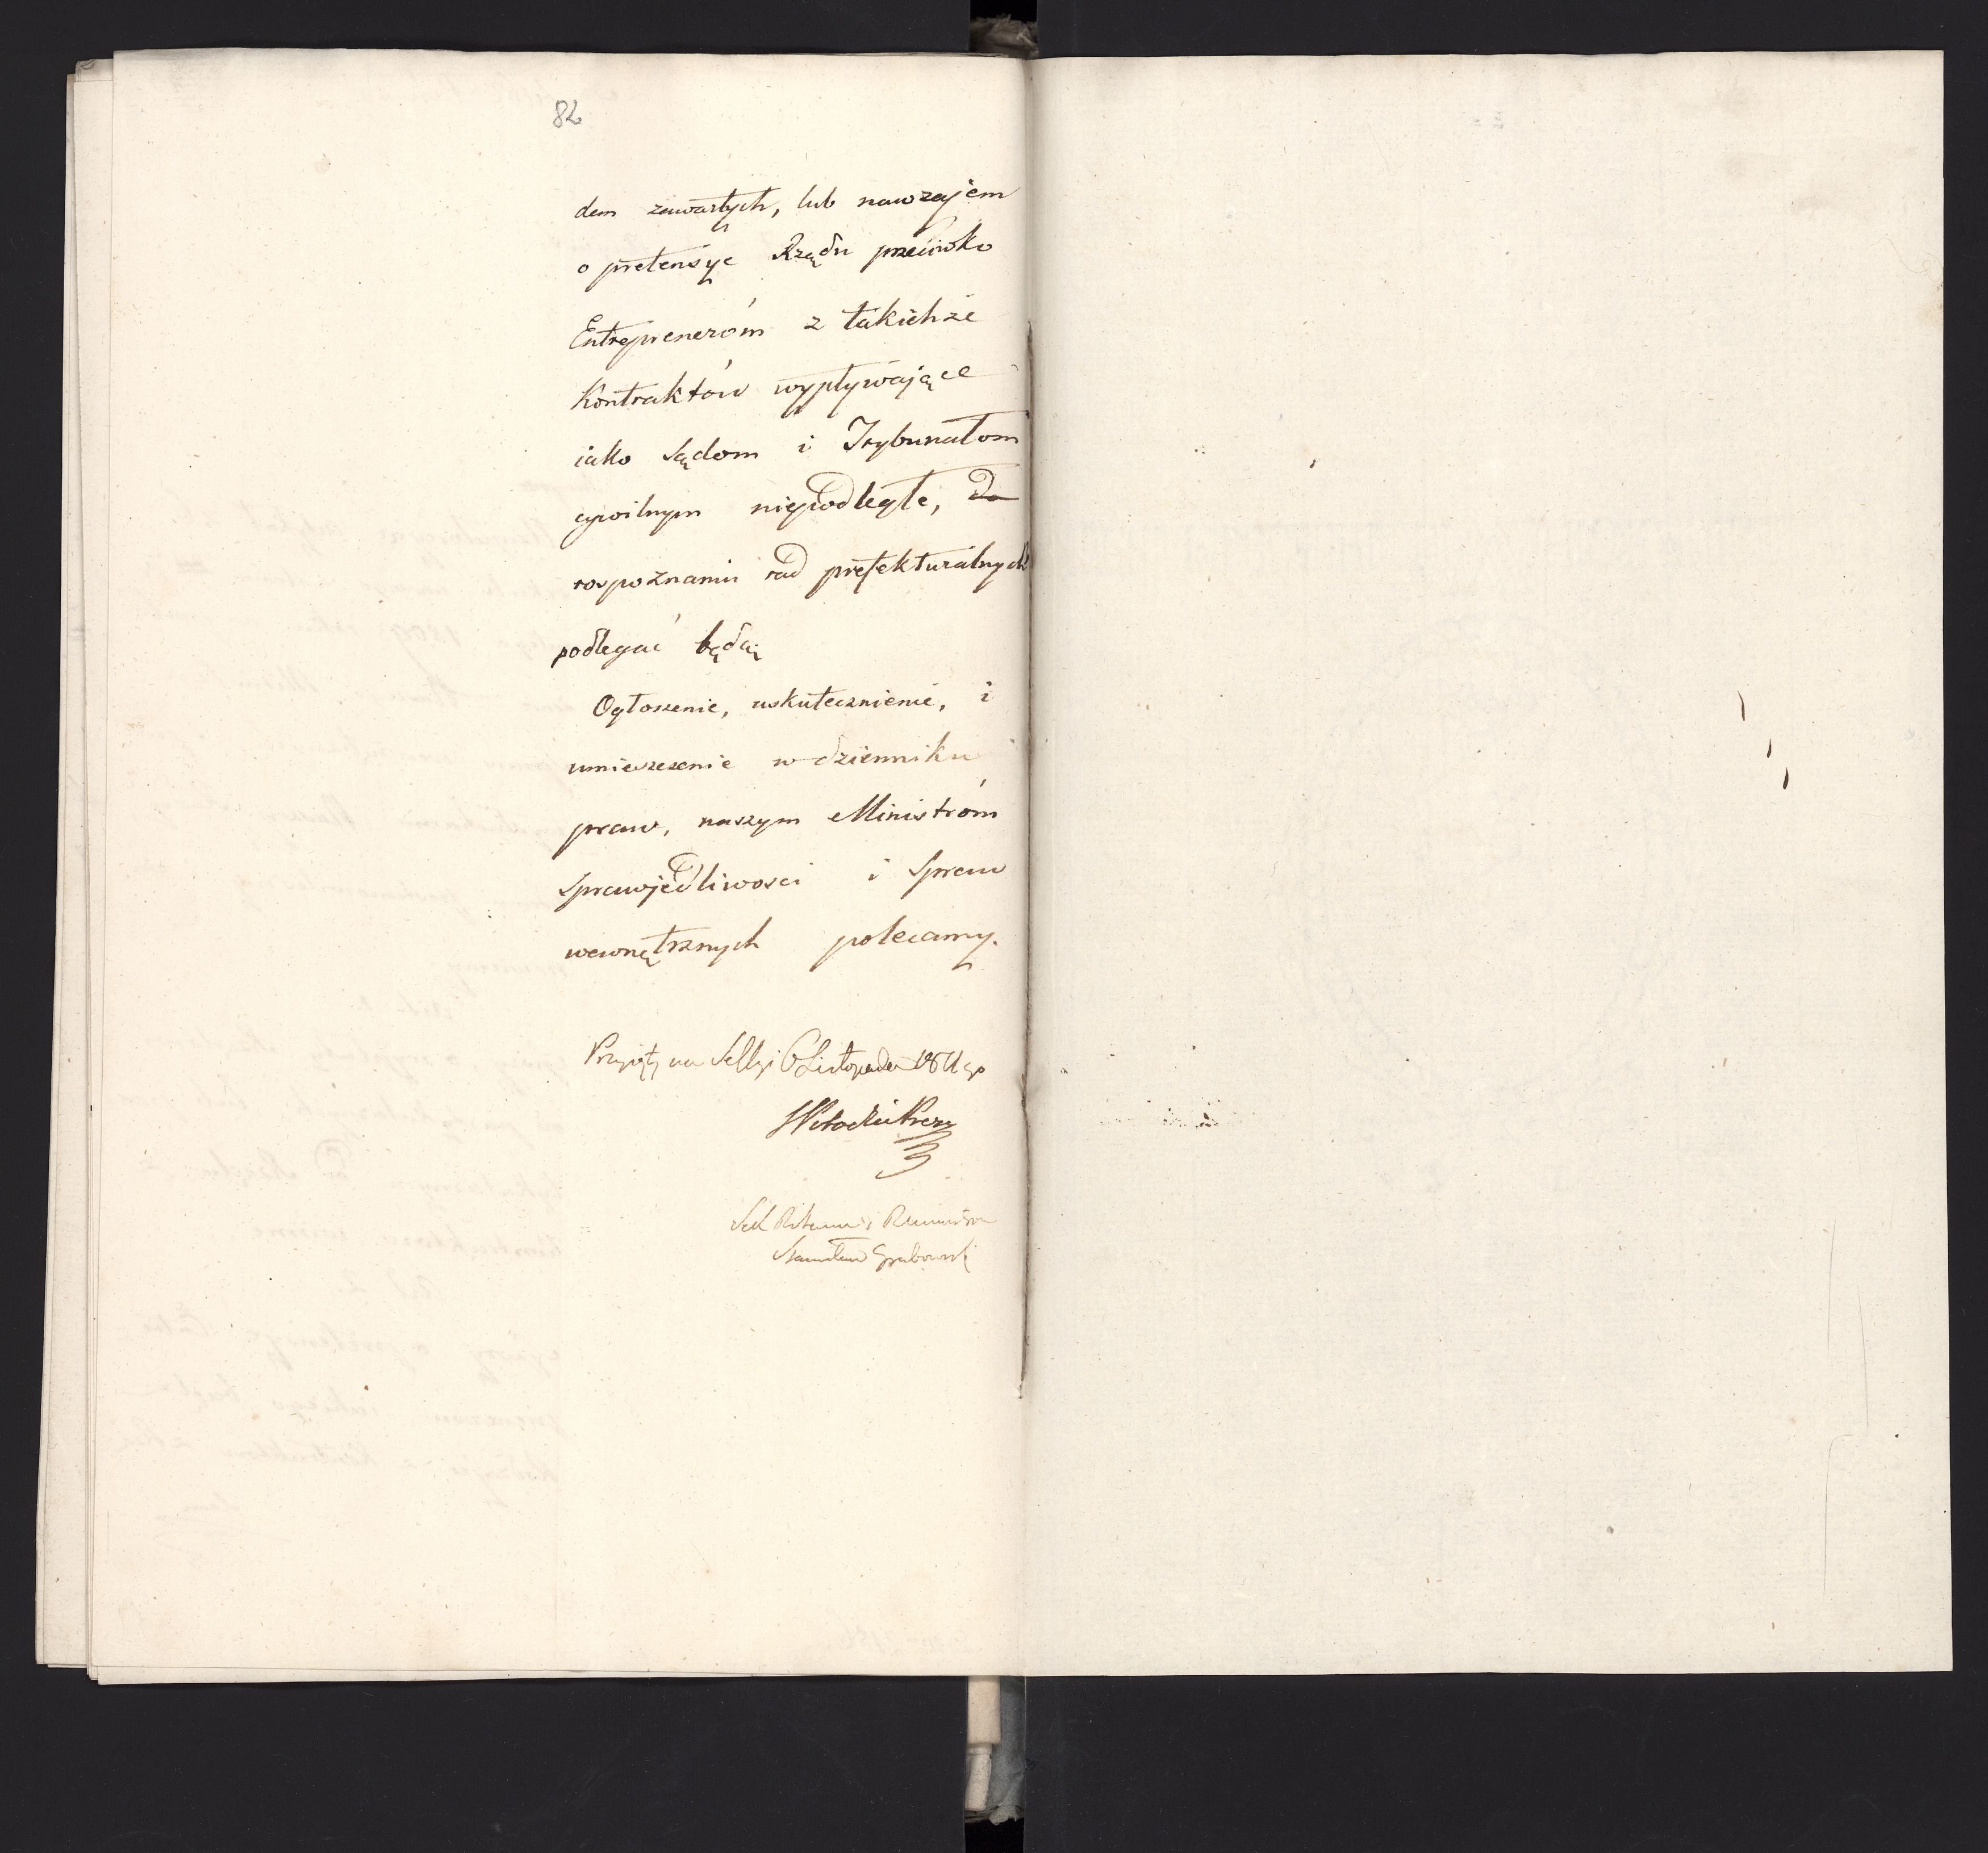 82
dem zawartych, lub nawzajem
o pretensye Rządu przeciwko
Entreprenerom z takichże
Kontraktów wypływające
iako Sądom i Trybunałom
cywilnym niepodległe, do
rospoznania rad prefekturalnych
podlegać będą
Ogłoszenie, uskutecznienie, i
umieszczenie w dzienniku
praw, naszym Ministróm
Sprawiedliwosci i Spraw
wewnętrznych polecamy.
Przyięty na Sessyi 6 Listopada 1811 go
Sek
Stanisław Grabowski